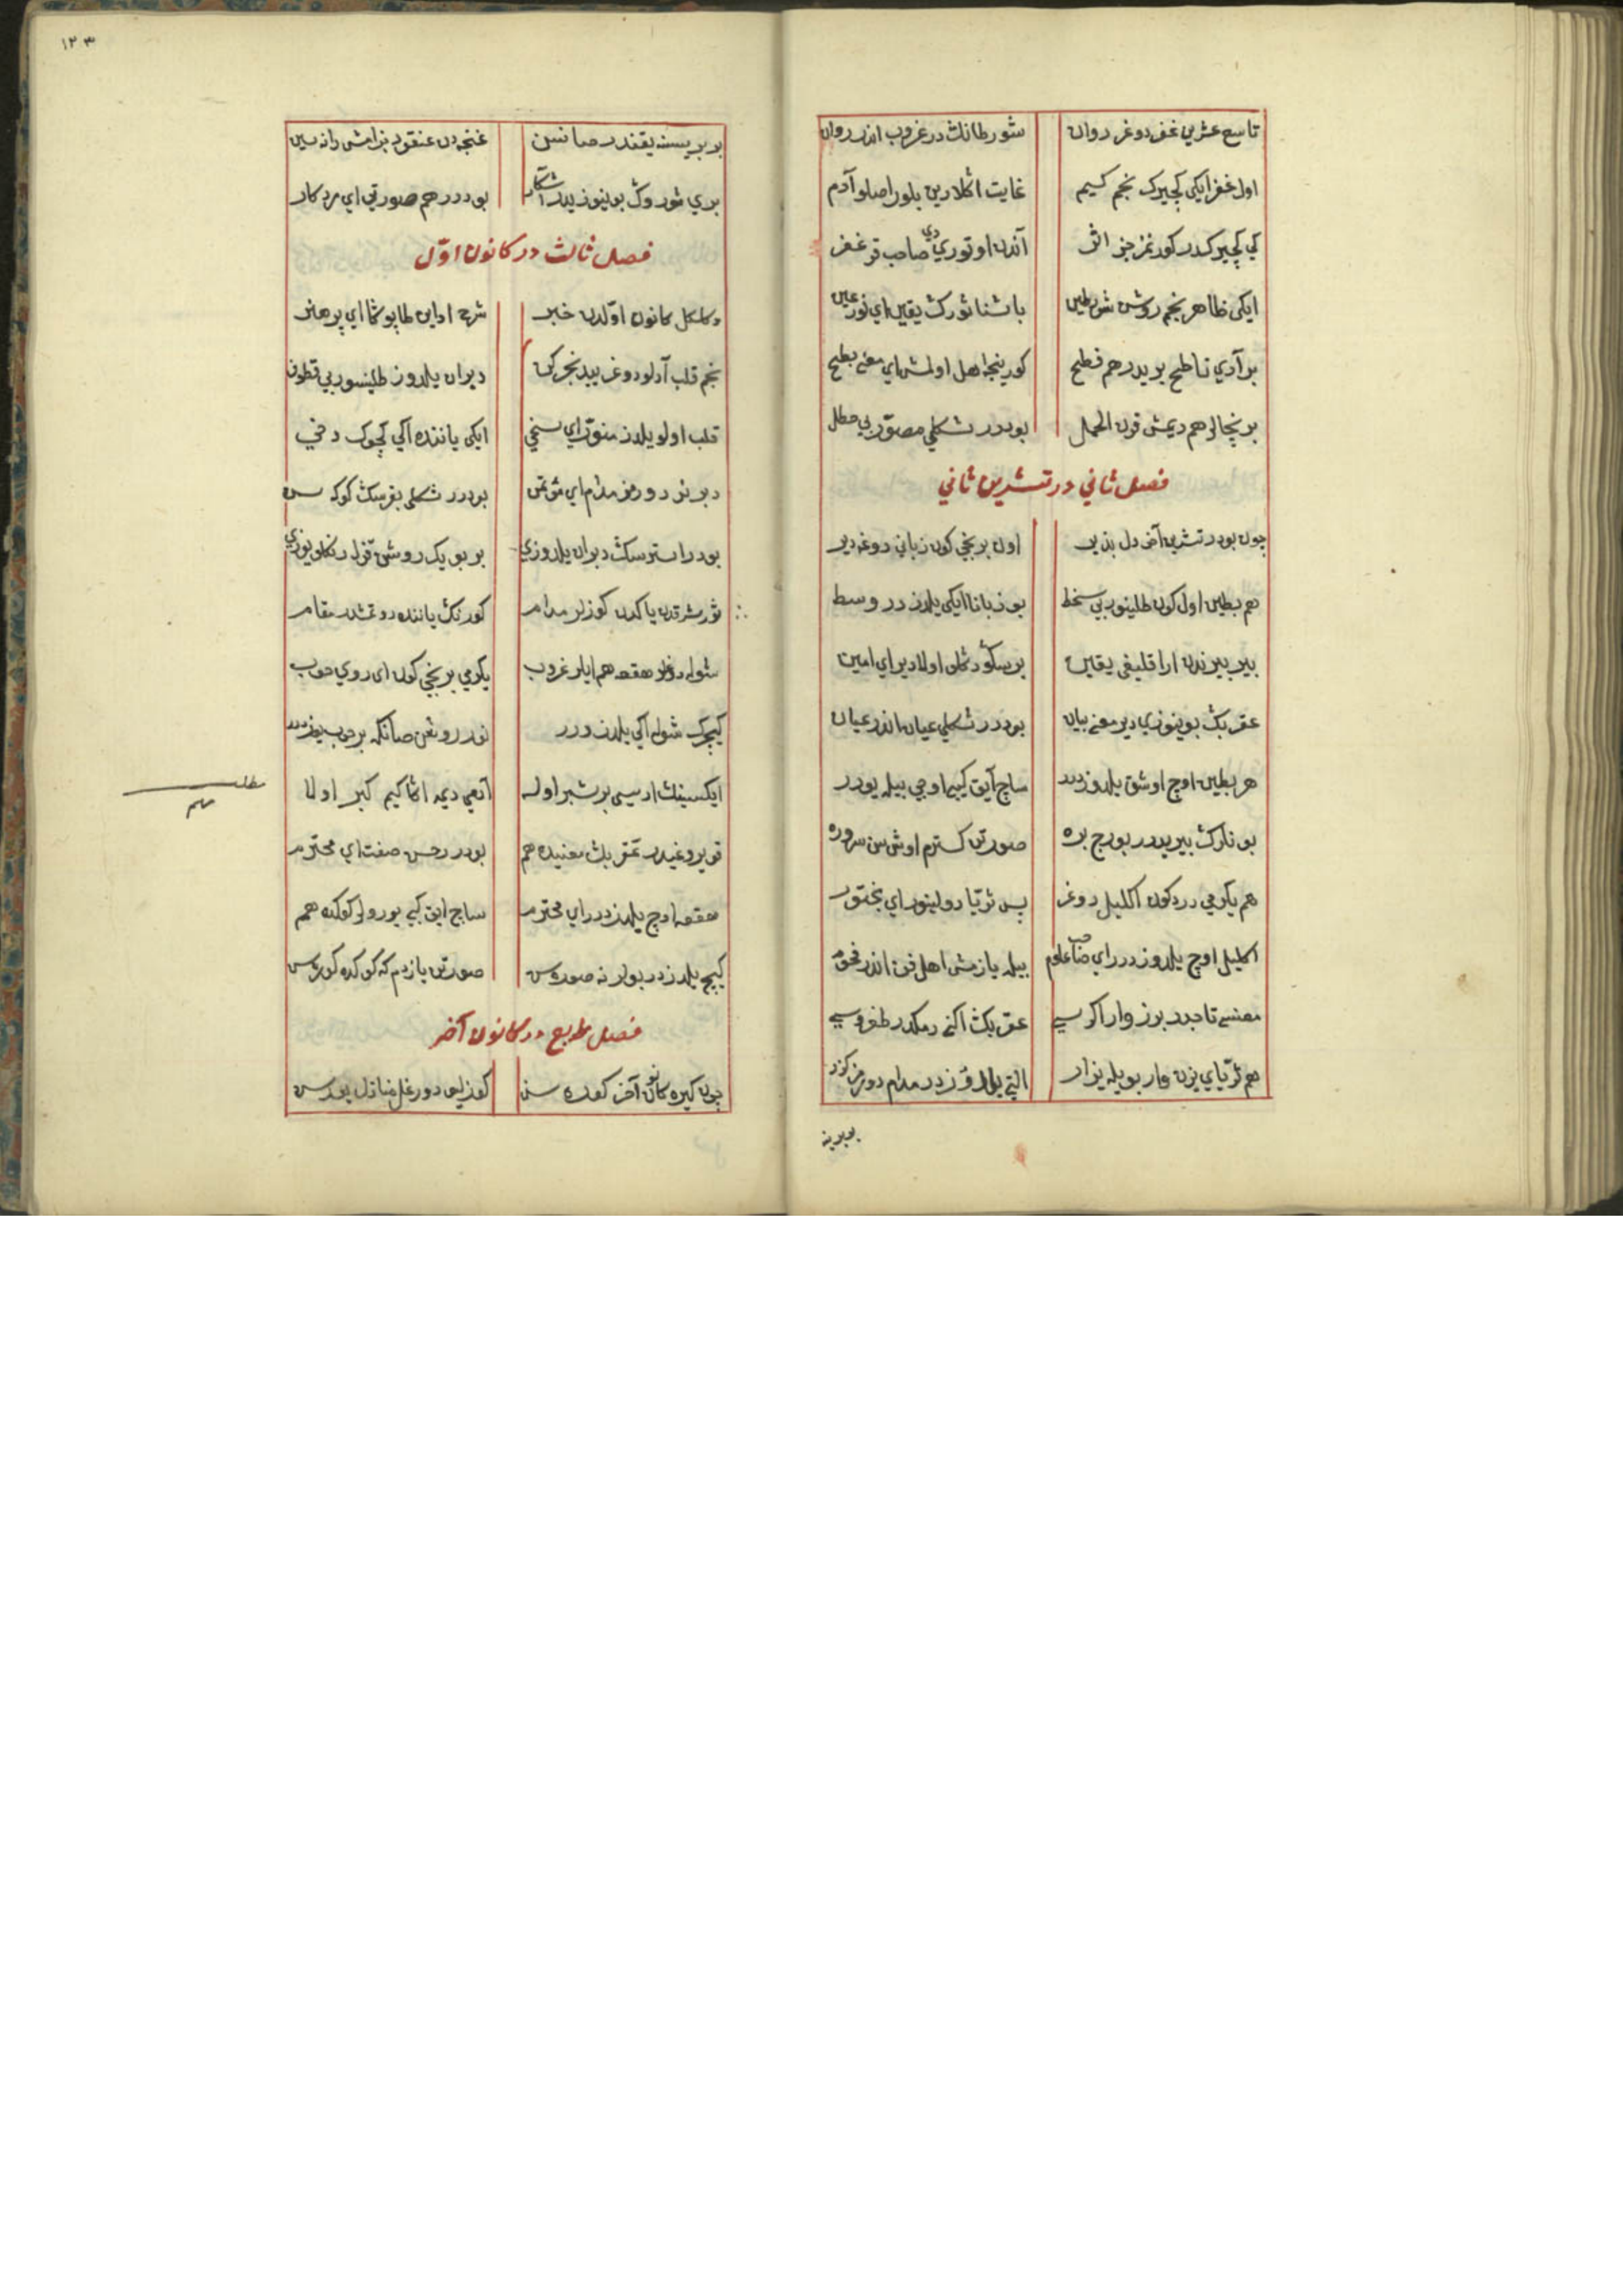 تاسع عشرین غفر دوغر روان شورطانك در غروب اندر روان
اول غفر ایکی کچیرك نجم کسیم غایت اکلارین بلور اصلو آدم
کي کچیرکدر کورنمز جز اثر آندن اوتوري دي صاحب قر غفر
ایکی ظاهر نجم روشن شرطین باشنا ثورك یقین اي نور عین
بر آدي ناطح بریدر هم فطیح کورینجه اهل اولمش اي معنی بطیح
برنجالر هم دیمش قرن الحمل بودر شکلي مصور بي خطل
فصل ثاني در تشرین ثاني
چون بودر تشرین آخر دل بذیر اول برنجی کون زباني دوغه دیر
هم بطین اول کون طلینور بي سخط بو زبانا ایکی یلدز در وسط
بیر بیرندن اراقلیغی یقین بر سکود مکلو اولا دیر اي امین
عقربك بوینوزي دیر معنی بیان بودر شکلي عیان اندر عیان
هر بطین اوچ اوشق یلدوزدر ساج آیق کیبی اوجي بیله یودر
بونلرك بیریدر بورج بره صورتن کسترم اوش سن سروره
هم یکرمي درد کون اکلیل دوغر پس ثریا دولینور اي بختور
اکلیل اوچ یلدوزدر اي صاحب علوم بیله یازمش اهل فن اندر نجوم
معنسی تاجدر برز وار اکریسي عقربك اکنه دمکدر طغروسي
هم ثریاي یزن وار بویله یزار التي یلدوزدر مدام دورمز کزر
بربرینه
۱۲۳
بربریسنه یقندر صانسن غنجه دن عنقود بزامش رانه سین
بري ثورو ك بوینوزیدر آشکار بودر هم صورتي اي مرد کار
فصل ثالث در کانون اوّل
دکلکل کانون اوّلدن خبر شرح اداین طاپوکا اي پر هنر
نجم قلب آدلو دوغر بیدنجر کن دبران یلدوز طلینسور بي قطون
قلب اولو یلدز منور اي سخي ایکی یاننده اکي کچوك دخي
دبرنر دورمز مدام اي مؤتمن بودر شکلي بقرسك کوکه سن
بودر استرسك دبران یلدوزي بر بویك روشن قزل رنکلو یوزي
ثور شرقدن یاکدن کوزلر مدام کورنك یاننده دوتمشدر مقام
شوله دوغار هقعه هم ایلر غروب یکرمي برنجي کون اي روي خوب
کیجرك شوله اکي یلدز در
ایکسینك اراسي بر شبر اوله آنعي دیمه اکا کیم کبر اولا
مطلب مهم
قویروغیدر عقربك معنیده هم بودر رحسن صفت اي محترم
هقعه اوچ یلدزدر اي محترم ساج ایق کبی یورولر کوکده هم
کیچ یلدزدر بولر نه صوره سن صورتن یازدم که کوکده کوره سن
فصل رابع در کانون آخر
چون کیره کانون آخر کوره سن کوزلیمي دورغل منازل یورسن